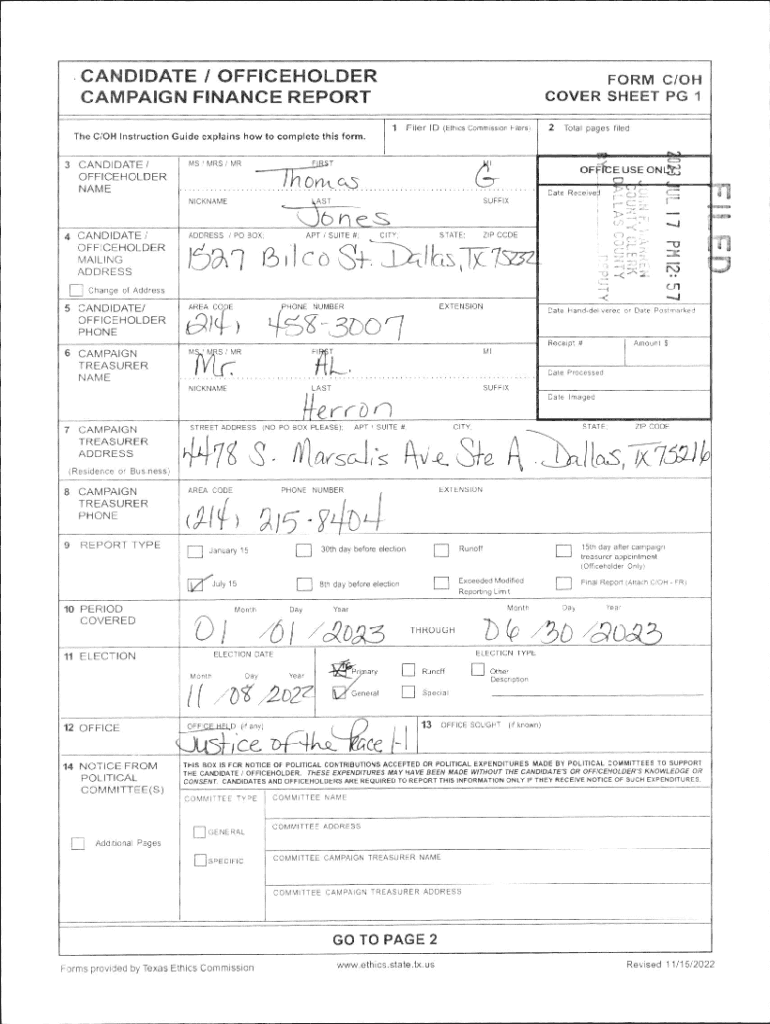 CANDIDATE / OFFICEHOLDER
CAMPAIGN FINANCE REPORT
FORM C/OH
COVER SHEET PG 1
The C/OH Instruction Guide explains how to complete this form.
1 Filer ID (Ethics Commission Filers)
2 Total pages filed
3 CANDIDATE / OFFICEHOLDER NAME
MS / MRS / MR FIRST MI
Thomas G
NICKNAME LAST SUFFIX
Jones
OFFICE USE ONLY
Date Received
2023 JUL 17 PM 12:57
COUNTY CLERK
DALLAS COUNTY
DEPUTY
FILED
4 CANDIDATE / OFFICEHOLDER MAILING ADDRESS
Change of Address
ADDRESS / PO BOX; APT / SUITE #; CITY; STATE; ZIP CODE
1527 Bilco St. Dallas, TX 75232
5 CANDIDATE/ OFFICEHOLDER PHONE
AREA CODE PHONE NUMBER EXTENSION
(214) 458-3007
Date Hand-delivered or Date Postmarked
Receipt # Amount $
Date Processed
Date Imaged
6 CAMPAIGN TREASURER NAME
MS / MRS / MR FIRST MI
Mr. AL.
NICKNAME LAST SUFFIX
Herron
7 CAMPAIGN TREASURER ADDRESS
(Residence or Business)
STREET ADDRESS (NO PO BOX PLEASE); APT / SUITE #; CITY; STATE; ZIP CODE
4478 S. Marsalis Ave Ste A. Dallas, TX 75216
8 CAMPAIGN TREASURER PHONE
AREA CODE PHONE NUMBER EXTENSION
(214) 215-8404
9 REPORT TYPE
January 15 30th day before election Runoff 15th day after campaign treasurer appointment (Officeholder Only)
July 15 8th day before election Exceeded Modified Reporting Limit Final Report (Attach C/OH - FR)
10 PERIOD COVERED
Month Day Year Month Day Year
01 / 01 / 2023 THROUGH 06 / 30 / 2023
11 ELECTION
ELECTION DATE ELECTION TYPE
Month Day Year
11 / 08 / 2022
Primary Runoff Other Description
General Special
12 OFFICE
OFFICE HELD (if any)
Justice of the Peace 1-1
13 OFFICE SOUGHT (if known)
14 NOTICE FROM POLITICAL COMMITTEE(S)
THIS BOX IS FOR NOTICE OF POLITICAL CONTRIBUTIONS ACCEPTED OR POLITICAL EXPENDITURES MADE BY POLITICAL COMMITTEES TO SUPPORT
THE CANDIDATE / OFFICEHOLDER. THESE EXPENDITURES MAY HAVE BEEN MADE WITHOUT THE CANDIDATE'S OR OFFICEHOLDER'S KNOWLEDGE OR
CONSENT. CANDIDATES AND OFFICEHOLDERS ARE REQUIRED TO REPORT THIS INFORMATION ONLY IF THEY RECEIVE NOTICE OF SUCH EXPENDITURES.
COMMITTEE TYPE
COMMITTEE NAME
GENERAL
COMMITTEE ADDRESS
Additional Pages
SPECIFIC
COMMITTEE CAMPAIGN TREASURER NAME
COMMITTEE CAMPAIGN TREASURER ADDRESS
GO TO PAGE 2
Forms provided by Texas Ethics Commission
www.ethics.state.tx.us
Revised 11/15/2022